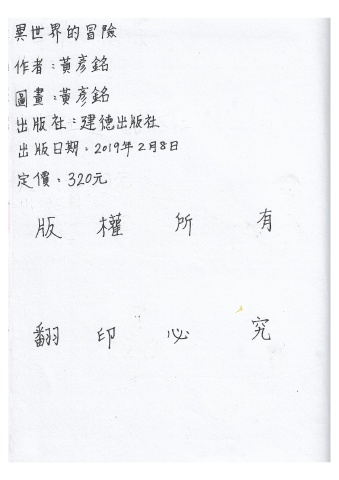 異世界的冒險
作者：黃彥銘
圖畫：黃彥銘
出版社：建德出版社
出版日期：2019年2月8日
定價：320元
版權所有
翻印必究